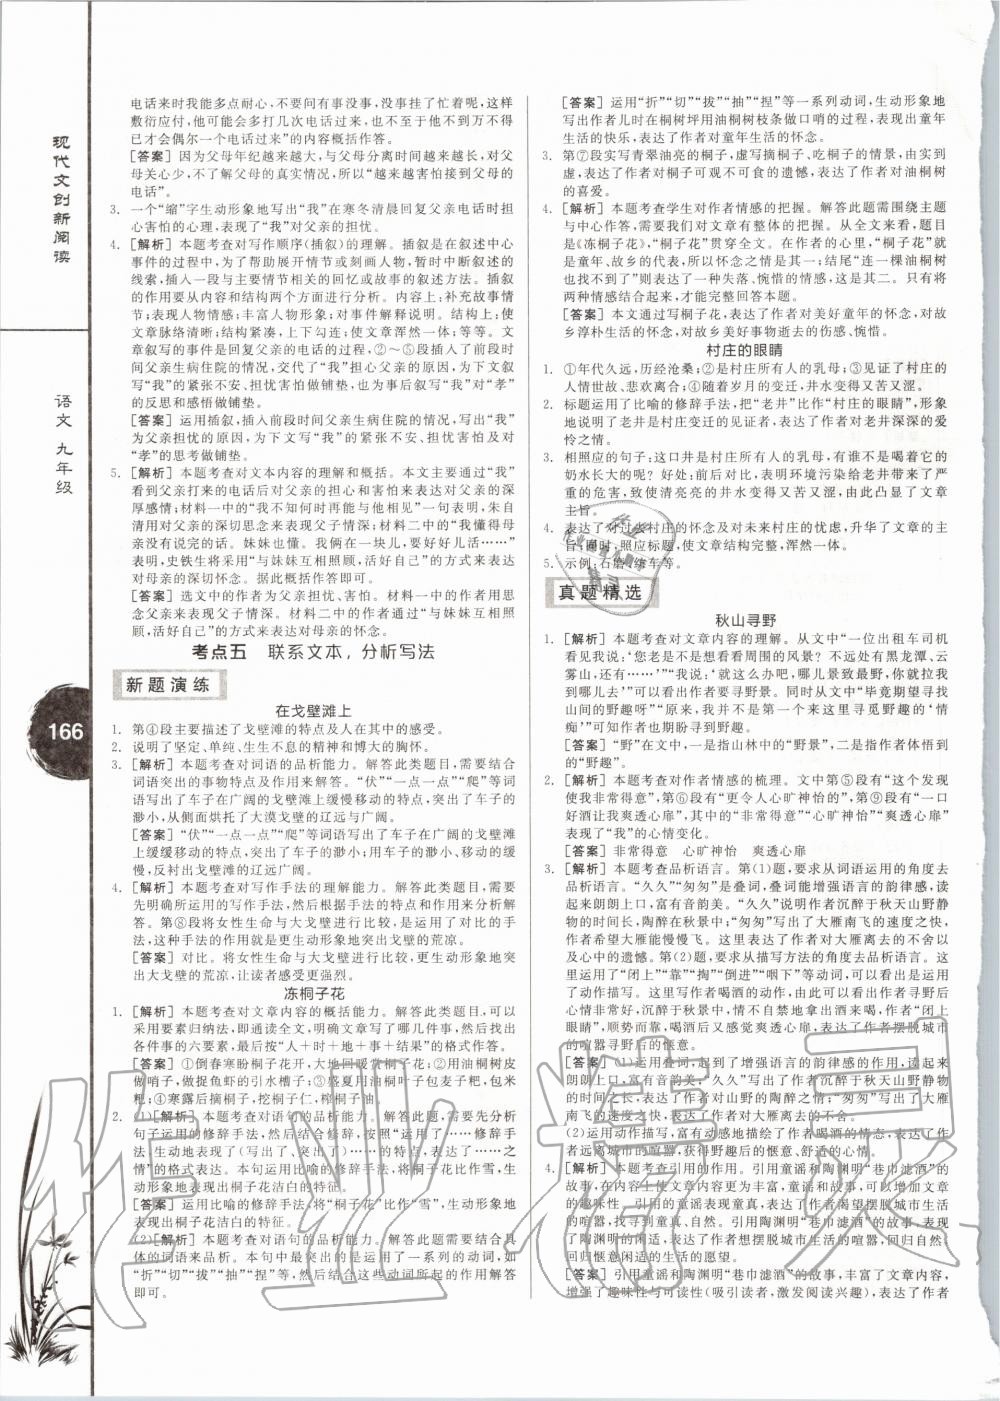 现代文创新阅读
语文 九年级
166
电话来时我能多点耐心,不要问有事没事,没事挂了忙着呢,这样
敷衍应付,他可能会多打几次电话过来,也不至于千不得万不得
已才会偶尔一个电话过来”的内容概括作答。
[答案] 因为父母年纪越来越大,与父母分离时间越来越长,对父
母关心少,不了解父母的真实情况,所以“越来越害怕接到父母的
电话”。
3. 一个“缩”字生动形象地写出“我”在寒冬清晨回复父亲电话时担
心害怕的心理,表现了“我”对父亲的担忧。
4. [解析] 本题考查对写作顺序(插叙)的理解。插叙是在叙述中心
事件的过程中,为了帮助展开情节或刻画人物,暂时中断叙述的
线索,插入一段与主要情节相关的回忆或故事的叙述方法。插叙
的作用要从内容和结构两个方面进行分析。内容上:补充故事情
节;表现人物情感;丰富人物形象;对事件解释说明。结构上:使
文章脉络清晰;结构紧凑,上下勾连;使文章浑然一体;等等。文
章叙写的事件是回复父亲的电话的过程,②~⑤段插入了前段时
间父亲生病住院的情况,交代了“我”担忧父亲的原因,为下文叙
写“我”的紧张不安、担忧害怕做铺垫,也为下文叙写“我”对“孝”
的反思和感悟做铺垫。
[答案] 运用插叙,插入前段时间父亲生病住院的情况,写出“我”
为父亲担忧的原因,为下文写“我”的紧张不安、担忧害怕和对
“孝”的思考做铺垫。
5. [解析] 本题考查对文本内容的理解和概括。本文主要通过“我”
看到父亲打来的电话后对父亲的担心和害怕来表现对父亲的深
厚感情;材料一中的“我不知何时再能与他相见”一句表明,朱自
清用对父亲的深切思念来表现父子情深;材料二中的“我懂得母
亲没有说完的话。妹妹也懂。我俩在一块儿,要好好活……”
表明,史铁生将用“与妹妹互相照顾,活好自己”的方式来表达
对母亲的深切怀念。据此概括作答即可。
[答案] 选文中的作者为父亲担忧、害怕。材料一中的作者用思
念父亲来表现父子情深。材料二中的作者通过“与妹妹互相照
顾,活好自己”的方式来表达对母亲的怀念。
考点五 联系文本,分析写法
新题演练
在戈壁滩上
1. 第④段主要描述了戈壁滩的特点及人在其中的感受。
2. 说明了坚定、单纯、生生不息的精神和博大的胸怀。
3. [解析] 本题考查对词语的品析能力。解答此类题目,需要结合
词语突出的事物特点及作用来解答。“伏”“一点一点”“爬”等词
语写出了车子在广阔的戈壁滩上缓慢移动的特点,突出了车子的
渺小,从侧面烘托了大漠戈壁的辽远与广阔。
[答案] “伏”“一点一点”“爬”等词语写出了车子在广阔的戈壁滩
上缓缓移动的特点,突出了车子的渺小;用车子的渺小、移动缓
慢,反衬出戈壁滩的辽远广阔。
4. [解析] 本题考查对写作手法的理解能力。解答此类题目,需要
先明确所运用的写作手法,然后根据手法的特点和作用分析解
答。第⑧段将女性生命与大戈壁进行比较,是运用了对比的手
法,这种手法的作用就是更生动形象地突出大戈壁的荒凉。
[答案] 对比。将女性生命与大戈壁进行比较,更生动形象地突
出大戈壁的荒凉,让读者感受更强烈。
冻桐子花
1. [解析] 本题考查对文章内容的概括能力。解答此类题目,可以
采用要素归纳法,即通读全文,明确文章写了哪几件事,然后找出
各件事的六要素,最后按“人+时+地+事+结果”的格式作答。
[答案] ①倒春寒盼桐子花开,大地回暖赏桐子花;②用油桐树皮
做哨子,做捉鱼虾的引水槽子;③盛夏用油桐叶子包麦子粑,包米
粑;④寒露过后打桐子,挖桐子仁,榨桐子油。
2. (1)[解析] 本题考查对语句的品析能力。解答此题,需要先分析
句子运用的修辞手法,然后结合修辞,按照“运用了……修辞手
法,生动地表现了(写出了、突出了)……表达了作者……之
情”的格式表达。本句运用比喻的修辞手法,把桐子花比作雪,生
动形象地表现出桐子花洁白的特征。
[答案] 运用比喻的修辞手法,将“桐子花”比作“雪”,生动形象地
表现出桐子花洁白的特征。
(2)[解析] 本题考查对语句的品析能力。解答此题需要结合具
体的词语来品析。本句中最突出的是运用了一系列的动词,如
“折”“切”“拔”“抽”“捏”等,然后结合这些动词所起的作用解答
即可。
[答案] 运用“折”“切”“拔”“抽”“捏”等一系列动词,生动形象地
写出作者儿时在桐树坪用油桐树枝条做口哨的过程,表现出童年
生活的快乐,表达了作者对童年生活的怀念。
3. 第⑦段实写青翠油亮的桐子,虚写摘桐子、吃桐子的情景,由实到
虚,表达了作者对桐子可观不可食的遗憾,表达了作者对油桐树
的喜爱。
4. [解析] 本题考查学生对作者情感的把握。解答此题需围绕主题
与中心作答,需要我们对文章有整体的把握。从全文来看,题目
是《冻桐子花》,“桐子花”贯穿全文。在作者的心里,“桐子花”就
是童年、故乡的代表,所以怀念之情是其一;结尾“连一棵油桐树
也找不到了”则表达了一种失落、惋惜的情感,这是其二。只有将
两种情感结合起来,才能完整回答本题。
[答案] 本文通过写桐子花,表达了作者对美好童年的怀念,对故
乡淳朴生活的怀念,对故乡美好事物逝去的伤感、惋惜。
村庄的眼睛
1. ①年代久远,历经沧桑;②是村庄所有人的乳母;③见证了村庄的
人情世故、悲欢离合;④随着岁月的变迁,井水变得又苦又涩。
2. 标题运用了比喻的修辞手法,把“老井”比作“村庄的眼睛”,形象
地说明了老井是村庄变迁的见证者,表达了作者对老井深深的爱
怜之情。
3. 相照应的句子:这口井是村庄所有人的乳母,有谁不是喝着它的
奶水长大的呢?好处:前后对比,表明环境污染给老井带来了严
重的危害,致使清亮亮的井水变得又苦又涩,由此凸显了文章
主旨。
4. 表达了对过去村庄的怀念及对未来村庄的忧虑,升华了文章的主
旨;同时,照应标题,使文章结构完整,浑然一体。
5. 示例:石磨、纺车等。
真题精选
秋山寻野
1. [解析] 本题考查对文章内容的理解。从文中“一位出租车司机
看着我说:‘您老是不是想看看周围的风景?附近有黑龙潭、云
雾山,还有……’‘我就这么办吧,哪儿景致最野,哪儿好玩,我就
去哪儿’”可以看出作者要寻野景。同时从文中“毕竟期望寻得
山间的野趣呀”“原来,我并不是第一个来这里寻觅野趣的‘情
痴’”可知作者也期盼寻到野趣。
[答案] “野”在文中,一是指山林中的“野景”,二是指作者体悟到
的“野趣”。
2. [解析] 本题考查对作者情感的梳理。文中第⑤段有“这个发现
使我非常得意”,第⑥段有“更令人心旷神怡的”,第⑨段有“一口
好酒让我爽透心扉”,其中的“非常得意”“心旷神怡”“爽透心扉”
表现了“我”的心情变化。
[答案] 非常得意 心旷神怡 爽透心扉
3. [解析] 本题考查品析语言。第(1)题,要求从词语运用的角度去
品析语言。“久久”“匆匆”是叠词,叠词能增强语言的韵律感,读
起来朗朗上口,富有音韵美。“久久”写出了作者沉醉秋天山野静
物的时间长,陶醉在秋景中;“匆匆”写出了大雁南飞的速度之快,
作者希望大雁能慢慢飞。这里表达了作者对大雁离去的不舍以
及心中的遗憾。第(2)题,要求从描写方法的角度去品析语言。这
里运用了“闭上”“靠”“掏”“倒进”“咽下”等动词,生动地写出了
作者喝酒的动作,由此表现作者情不自禁的情态。作者寻得野景后心
情好,沉醉于秋景中,情不自禁地拿出酒来喝,从其动作“闭上
眼睛”,顺势而靠,喝酒后又感觉爽透心扉,可见作者摆脱城市
的喧嚣寻野后的惬意。
[答案] (1)运用叠词,起到了增强语言的韵律感的作用,读起来
朗朗上口,富有音韵美;“久久”写出了作者沉醉于秋天山野静物
的时间之长,表现了作者对山野美景的陶醉;“匆匆”写出了大雁
南飞的速度之快,表达了作者对大雁离去的不舍。
(2)运用动作描写,富有动感地描绘了作者喝酒的情态,表达了作
者远离城市的喧嚣,获得野趣后的惬意、舒适的心情。
4. [解析] 本题考查引用的作用。引用童谣和陶渊明“巷巾滤酒”的
故事,在内容上使文章内容更为丰富,童谣和故事,可以增加文章
的趣味性。引用的童谣表现童真、自然。引用陶渊明“巷巾滤酒”的故事,表现
陶渊明的闲适,表达了作者渴望摆脱城市生活的喧嚣,回归自然,
归隐惬意闲适的生活的愿望。
[答案] 引用童谣和陶渊明“巷巾滤酒”的故事,丰富了文章内容,
增强了趣味性与可读性(吸引读者,激发阅读兴趣),表达了作者